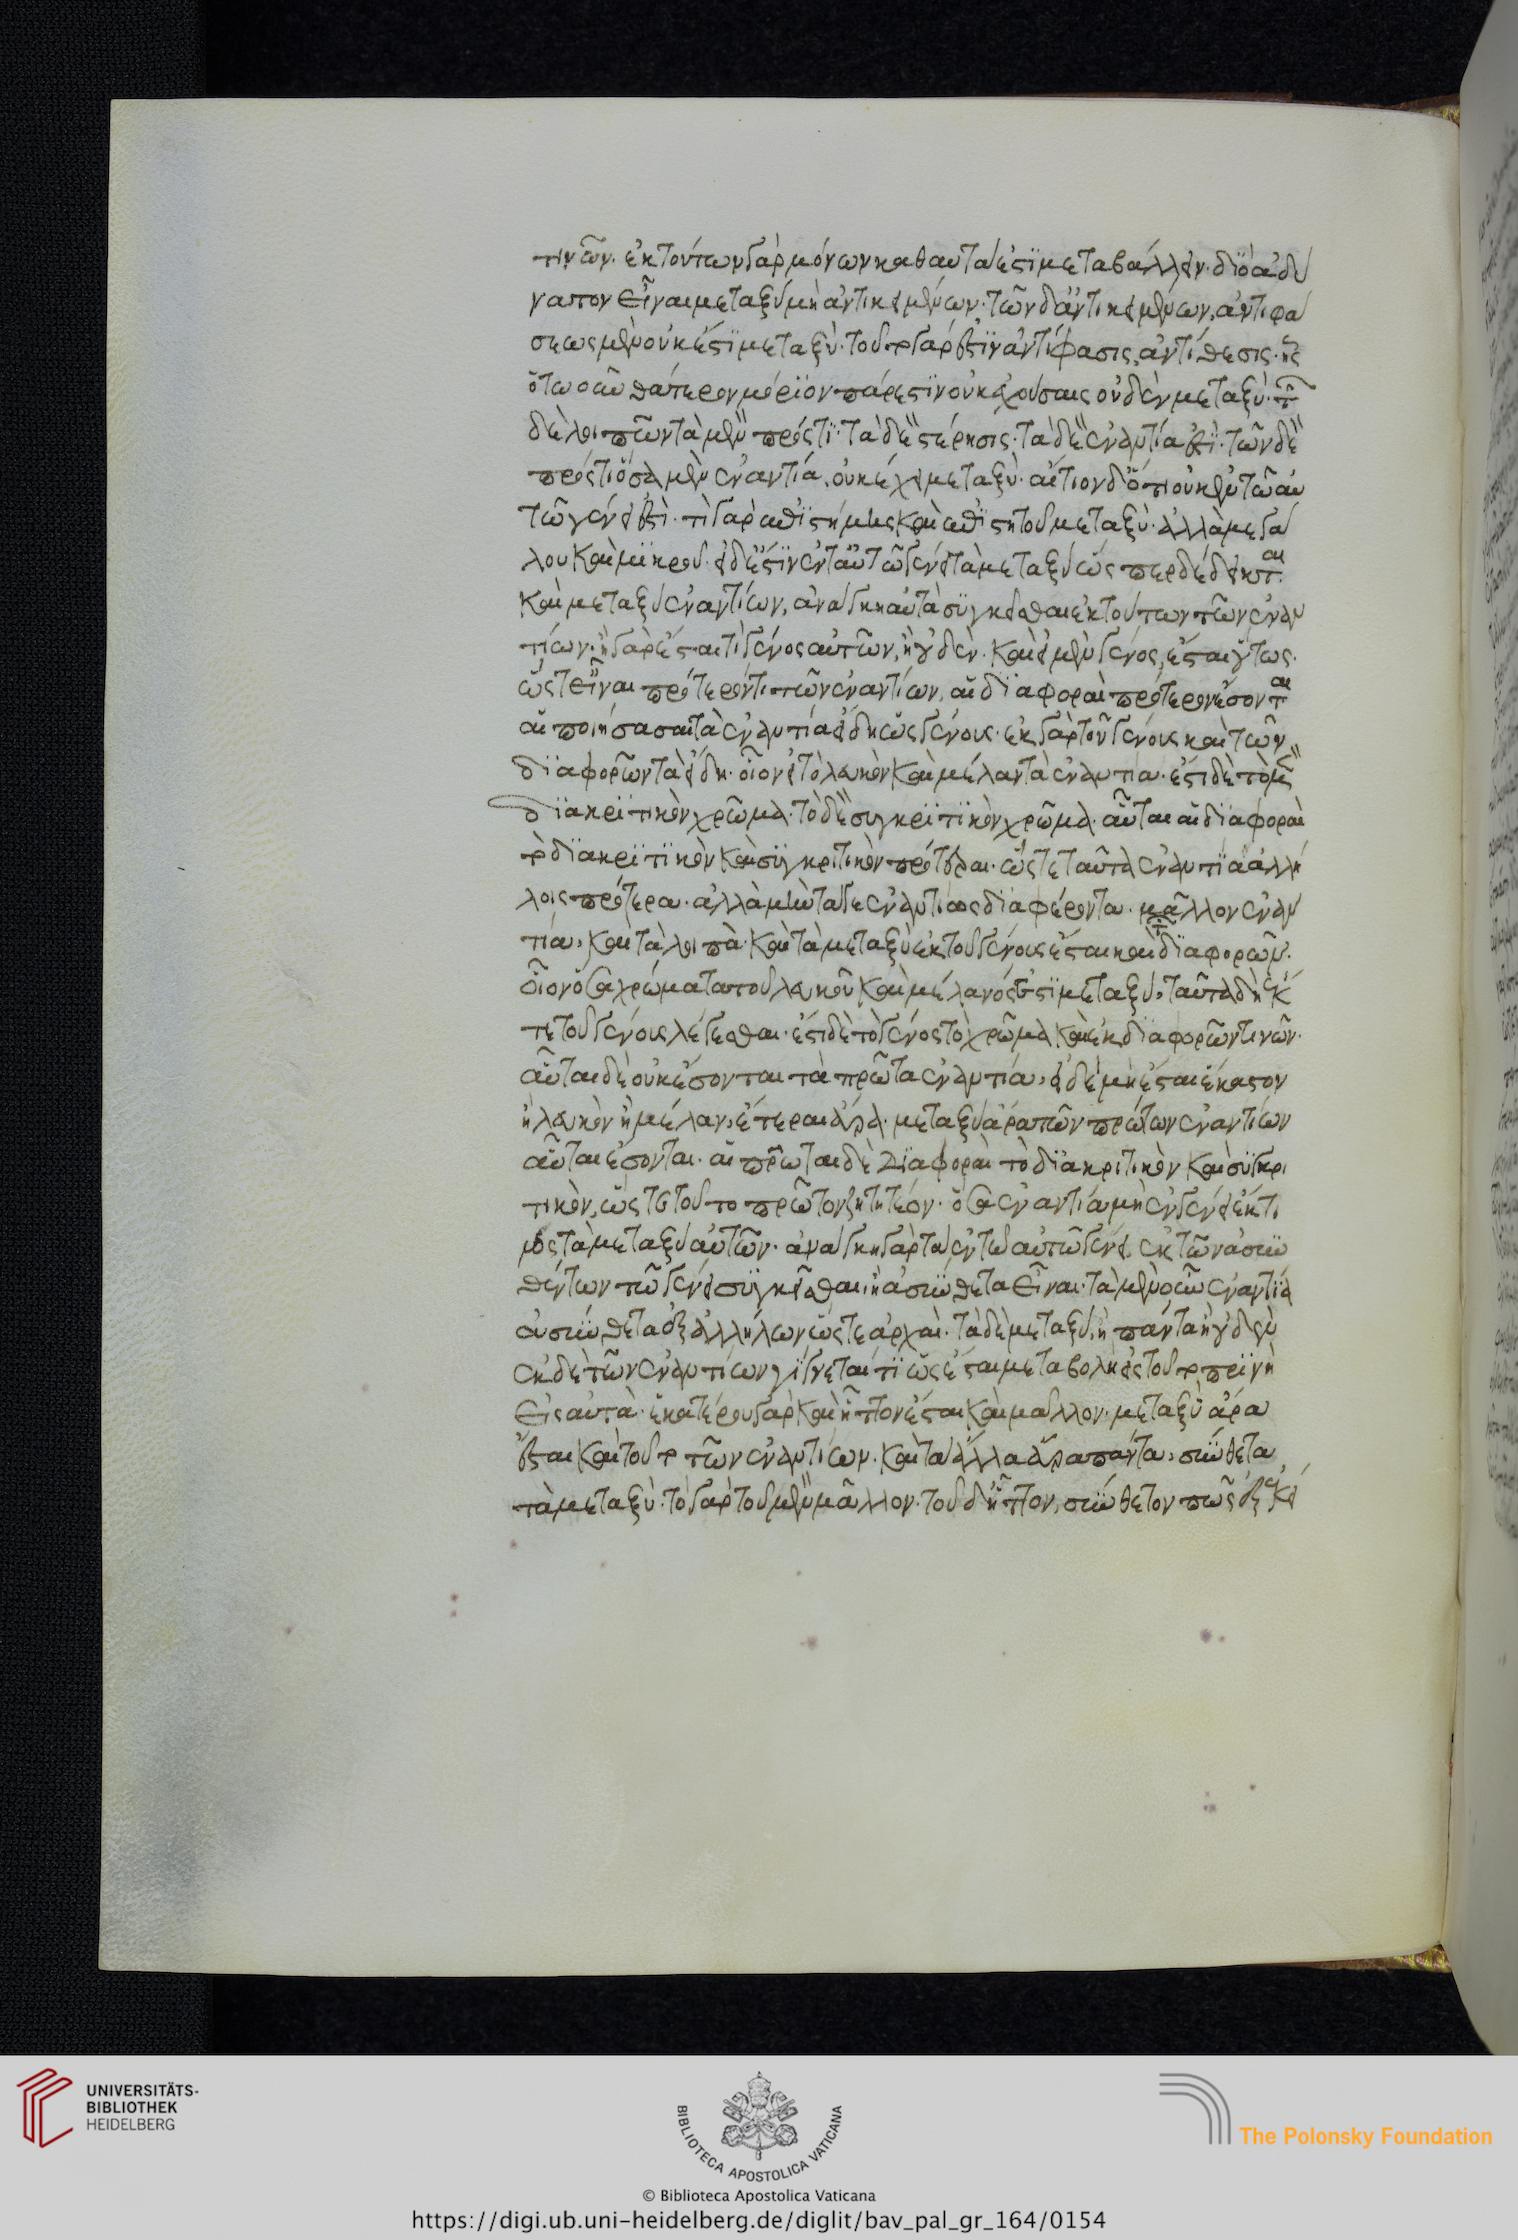 τινῶν· ἐκ τούτων γὰρ μόνων καθ αυτά ἐστι μεταβάλλειν· διὸ ἀδύ
νατον εἶναι μεταξὺ μὴ ἀντικειμένων· τῶν δ ἀντικειμένων, ἀντιφά
σεως μὲν οὐκ ἔστι μεταξύ· τοῦτο γάρ ἐστιν ἀντίφασις, ἀντίθεσις· ἧς
ὁτωοῦν θάτερον μόριον πάρεστιν οὐκ ἐχούσαις οὐδὲν μεταξύ· τῶν
δὲ λοιπῶν τὰ μὲν πρός τι· τὰ δὲ στέρησις· τὰ δὲ ἐναντία ἐστί· τῶν δὲ
πρός τι ὅσα μὲν ἐναντία, οὐκ ἔχει μεταξύ· αἴτιον δ ὅτι οὐκ ἐν τῶ αὐ
τῶ γένει ἐστί· τί γὰρ ἐπιστήμης καὶ ἐπιστητοῦ μεταξύ· ἀλλὰ μεγά
λου καὶ μικροῦ· εἰ δ ἔστιν ἐν ταὐτῶ γένει τὰ μεταξὺ ὥσπερ δέδεικται
καὶ μεταξὺ ἐναντίων, ἀνάγκη αὐτὰ συγκεῖσθαι ἐκ τούτων τῶν ἐναν
τίων· ἢ γὰρ ἔσται τὶ γένος αὐτῶν, ἢ οὐδέν· καὶ εἰ μὲν γένος, ἔσται οὕτως·
ὥστ εἶναι πρότερόν τι τῶν ἐναντίων, αἱ διαφοραὶ πρότερον ἔσονται
αἱ ποιήσασαι τὰ ἐναντία εἴδη ὡς γένους· ἐκ γὰρ τοῦ γένους καὶ τῶν
διαφορῶν τὰ εἴδη· οἷον εἰ τὸ λευκὸν καὶ μέλαν τὰ ἐναντία· ἔστι δὲ τὸ μὲν
διακριτικὸν χρῶμα· τὸ δὲ συγκριτικὸν χρῶμα· αὗται αἱ διαφοραὶ
τὸ διακριτικὸν καὶ συγκριτικὸν πρότεραι· ὥστε ταῦτα ἐναντία ἀλλή
λοις πρότερα· ἀλλὰ μὴν τάγε ἐναντίως διαφέροντα· μᾶλλον ἐναν
τία, καὶ τὰ λοιπὰ καὶ τὰ μεταξὺ ἐκ τοῦ γένους ἔσται καὶ διαφορῶν·
οἷον ὅσα χρώματα τοῦ λευκοῦ καὶ μέλανός ἐστι μεταξύ, ταῦτα δὴ ἔκ
τε τοῦ γένους λέγεσθαι· ἔστι δὲ τὸ γένος τὸ χρῶμα καὶ ἐκ διαφορῶν τινῶν·
αὗται δὲ οὐκ ἔσονται τὰ πρῶτα ἐναντία, εἰ δὲ μὴ ἔσται ἕκαστον
ἢ λευκὸν ἢ μέλαν, ἕτεραι ἄρα· μεταξὺ ἄρα τῶν πρώτων ἐναντίων
αὗται ἔσονται· αἱ πρῶται δὲ διαφοραὶ τὸ διακριτικὸν καὶ συγκρι
τικόν, ὥστε τοῦτο πρῶτον ζητητέον· ὅσα ἐναντία μὴ ἐν γένει ἐκ τί
νος τὰ μεταξὺ αὐτῶν· ἀνάγκη γὰρ τὰ ἐν τῶ αὐτῶ γένει ἐκ τῶν ἀσυν
θέτων τῶ γένει συγκεῖσθαι, ἢ ἀσύνθετα εἶναι· τὰ μὲν οὖν ἐναντία
ἀσύνθετα ἐξ ἀλλήλων ὥστε ἀρχαί· τὰ δὲ μεταξύ, ἢ πάντα ἢ οὐδέν
ἐκ δὲ τῶν ἐναντίων γίγνεταί τι ὥς ἔσται μεταβολὴ εἰς τοῦτο πρὶν ἢ
εἰς αὐτά· ἑκατέρου γὰρ καὶ ἧττον ἔσται καὶ μᾶλλον· μεταξὺ ἄρα
ἔσται καὶ τοῦτο τῶν ἐναντίων· καὶ τὰ ἄλλα ἄρα πάντα, σύνθετα
τὰ μεταξύ· τὸ γὰρ τοῦ μὲν μᾶλλον· τοῦ δ ἧττον, σύνθετόν πως ἐξ ἐκεί
UNIVERSITÄTS-
BIBLIOTHEK
HEIDELBERG
BIBLIOTECA APOSTOLICA VATICANA
The Polonsky Foundation
© Biblioteca Apostolica Vaticana
https://digi.ub.uni-heidelberg.de/diglit/bav_pal_gr_164/0154